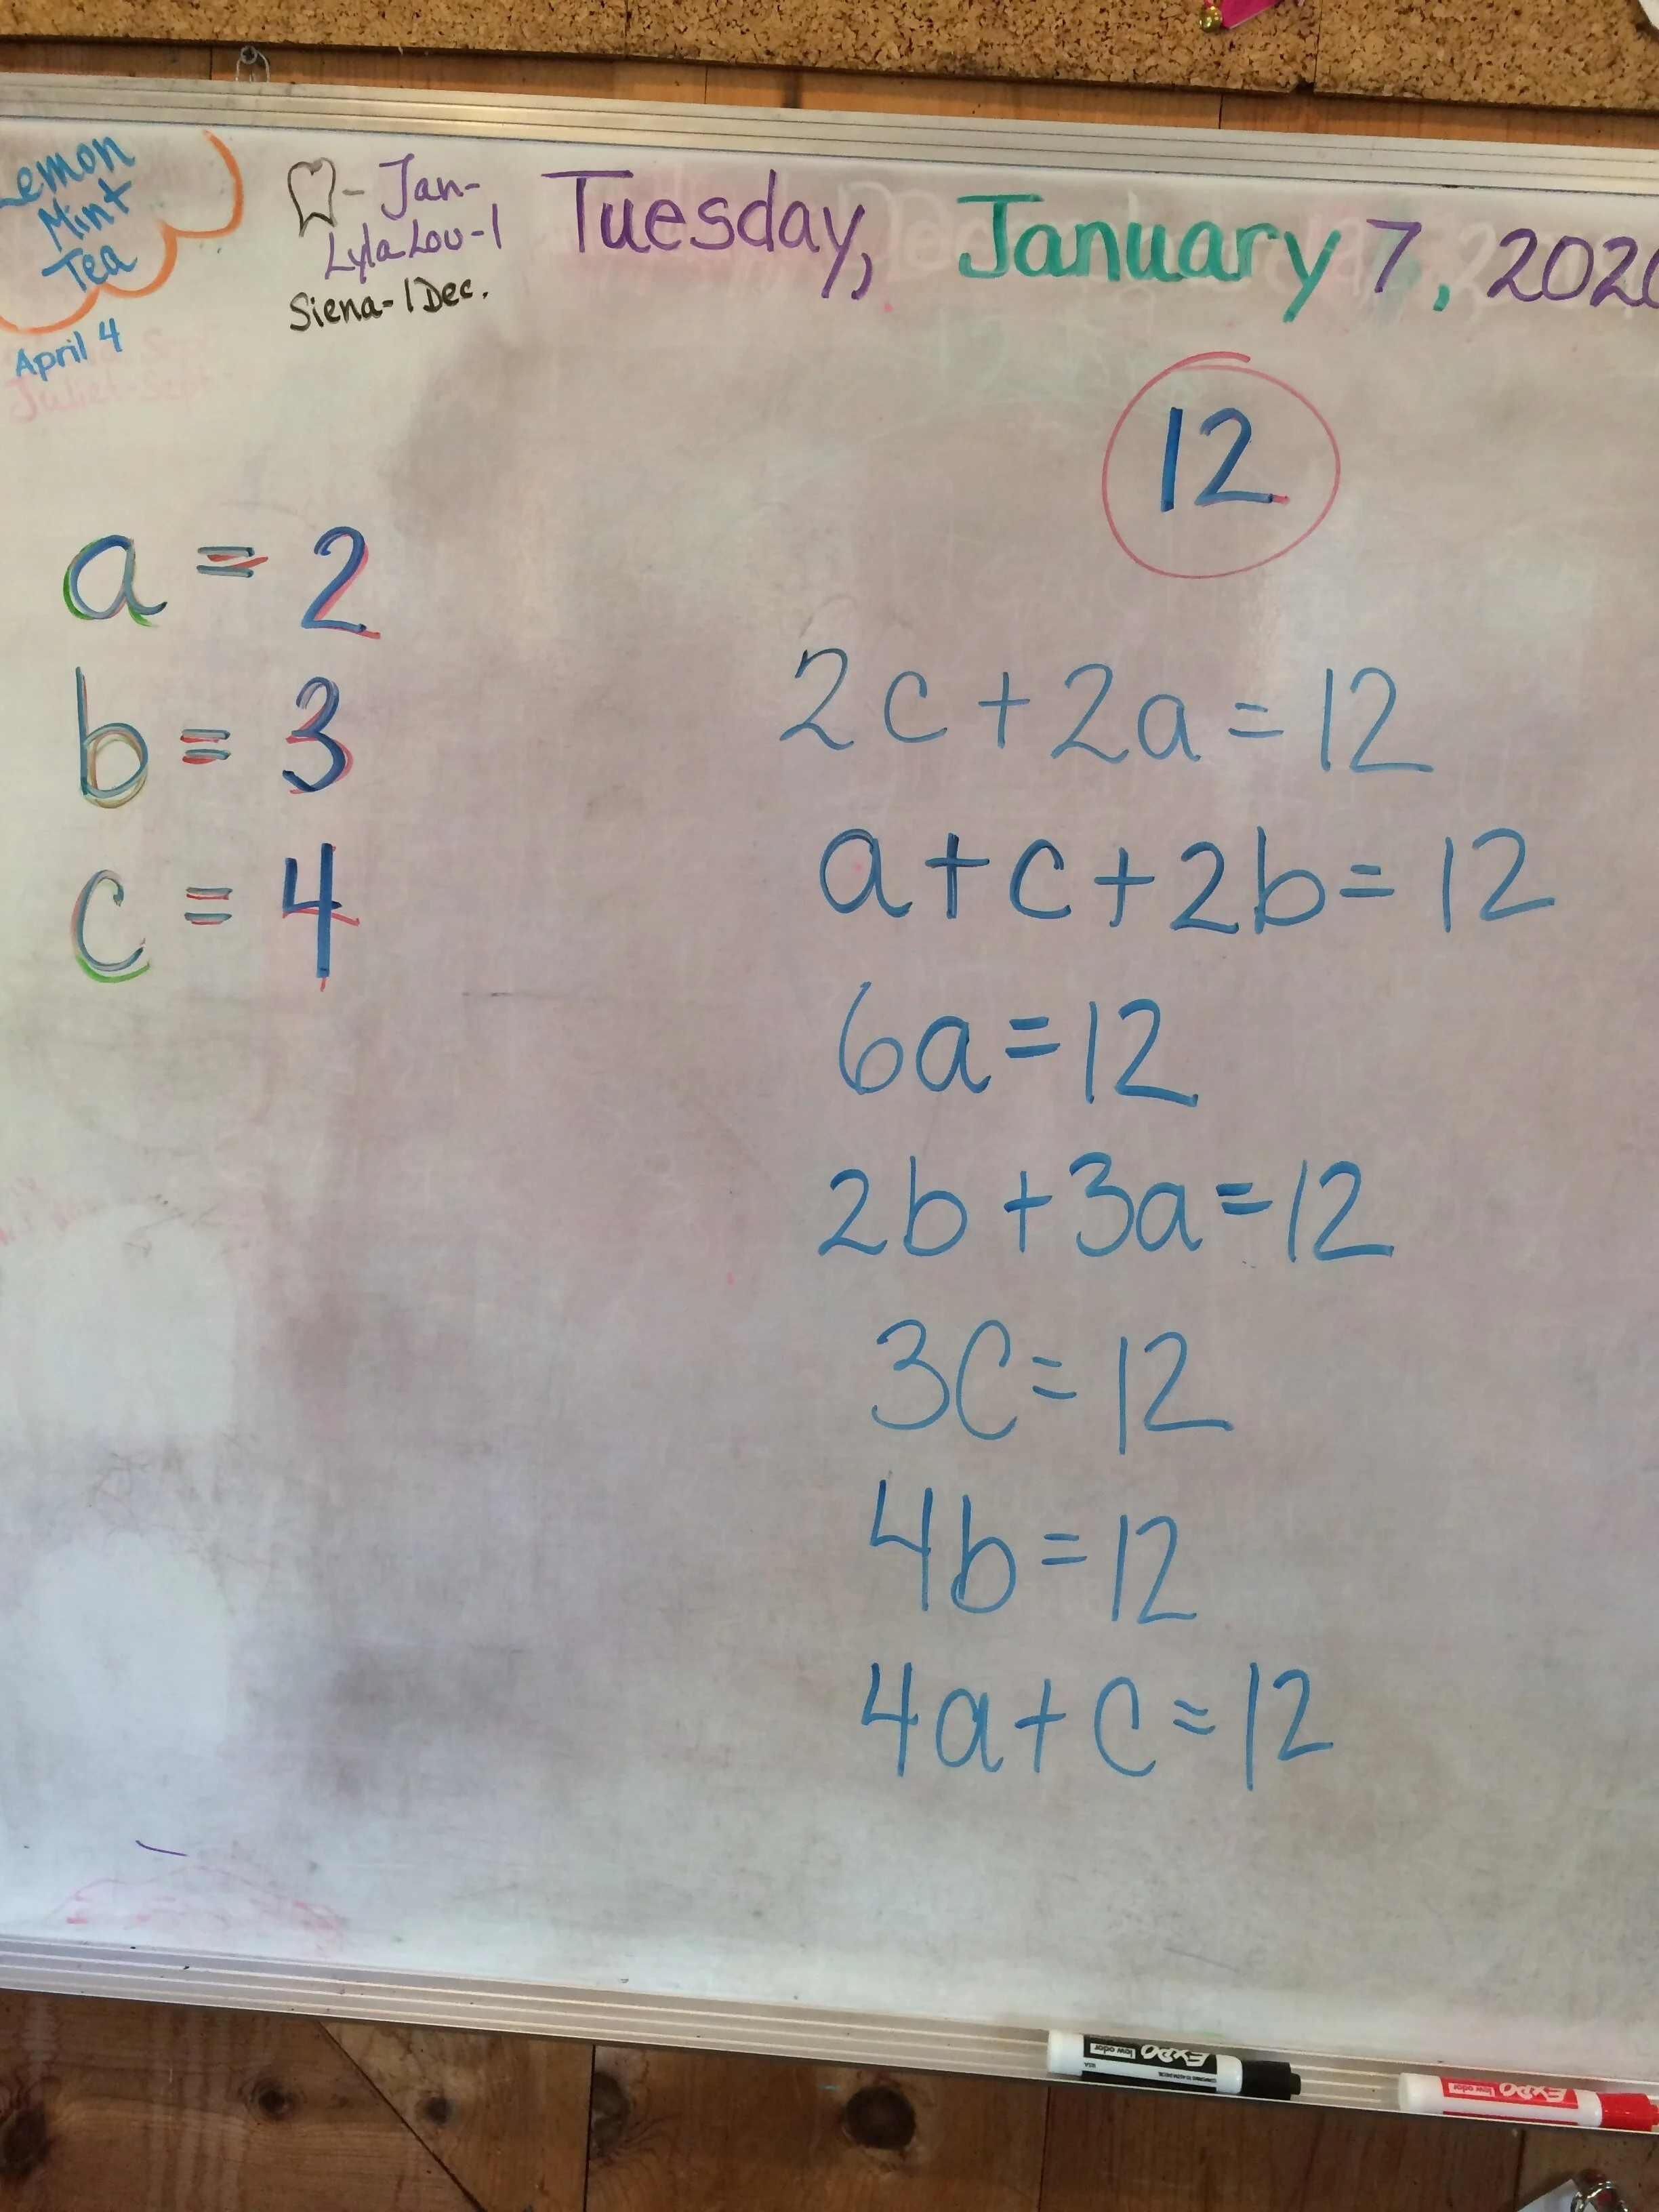 Lemon
Mint
Tea
April 4
Juliet-Sept
- Jan-
Lyla Lou-1
Siena-1 Dec.
Tuesday, January 7, 2020
12
a = 2
b = 3
c = 4
2c+2a=12
a+c+2b=12
6a=12
2b+3a=12
3C=12
4b=12
4a+c=12
EXPO
low odor
USA
EXPO
low odor